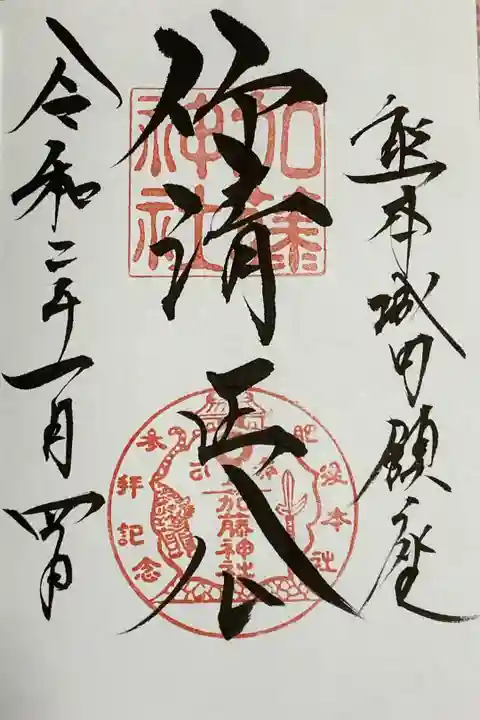 熊本城内鎮座
清正公
令和二年一月四日
加藤神社
肥後本社
加藤神社
参拝記念